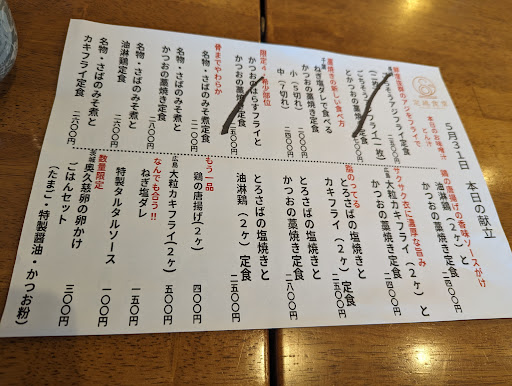 5月31日 本日の献立
本日のお味噌汁
とん汁
鮮度抜群のアジをフライで
藁焼きの新しい食べ方
ねぎ塩ダレで食べる
かつおの藁焼き定食
小(5切れ)
中(7切れ)
限定4・希少部位
かつおのはらすフライと
かつおの藁焼き定食
骨までやわらか
名物・さばのみそ煮定食
名物・さばのみそ煮と
かつおの藁焼き定食
二六〇〇円
名物・さばのみそ煮と
油淋鶏定食
二六〇〇円
名物・さばのみそ煮と
カキフライ定食
二六〇〇円
鶏の唐揚げの香味ソースがけ
油淋鶏(2ヶ)と
かつおの藁焼き定食
サクサク衣に濃厚な旨み
広島 大粒カキフライ(2ヶ)と
かつおの藁焼き定食
脂のってる
とろさばの塩焼きと
カキフライ(2ヶ)定食
二五〇〇円
とろさばの塩焼きと
かつおの藁焼き定食
二八〇〇円
とろさばの塩焼きと
油淋鶏(2ヶ)定食
二五〇〇円
もう一品
鶏の唐揚げ(2ヶ)
四〇〇円
広島 大粒カキフライ(2ヶ)
五〇〇円
なんでも合う!!
ねぎ塩ダレ
一五〇円
特製タルタルソース
一〇〇円
数量限定
茨城 奥久慈卵の卵かけ
ごはんセット
三〇〇円
(たまご・特製醤油・かつお粉)